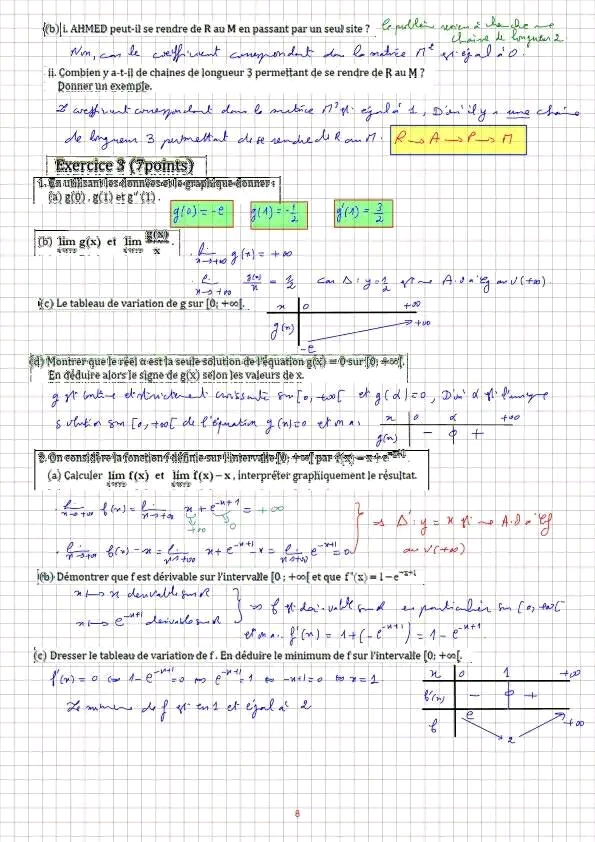 (b) i. AHMED peut-il se rendre de R au M en passant par un seul site ? Le problème revient à chercher une
chaîne de longueur 2
Non, car le coefficient correspondant dans la matrice M² est égal à 0.
ii. Combien y a-t-il de chaines de longueur 3 permettant de se rendre de R au M ?
Donner un exemple.
Le coefficient correspondant dans la matrice M³ est égal à 1, D'où il y a une chaîne
de longueur 3 permettant de se rendre de R au M. R → A → P → M
Exercice 3 (7points)
1. En utilisant les données et le graphique donner :
(a) g(0) , g(1) et g'(1) .
g(0) = -e g(1) = -1/2 g'(1) = 3/2
(b) lim g(x) et lim g(x)/x .
x→+∞ x→+∞
. lim x→+∞ g(x) = +∞
. lim x→+∞ g(x)/x = 1/2 car Δ : y = 1/2 est une A.O à Cg au V(+∞)
(c) Le tableau de variation de g sur [0; +∞[.
x 0 +∞
g(x) -e +∞
(d) Montrer que le réel α est la seule solution de l'équation g(x) = 0 sur [0; +∞[.
En déduire alors le signe de g(x) selon les valeurs de x.
g est continue et strictement croissante sur [0, +∞[ et g(α) = 0, D'où α est l'unique
solution sur [0, +∞[ de l'équation g(x) = 0 et on a :
x 0 α +∞
g(x) - 0 +
2. On considère la fonction f définie sur l'intervalle [0; +∞[ par f(x) = x + e^{-x+1}.
(a) Calculer lim f(x) et lim f(x) – x , interpréter graphiquement le résultat.
x→+∞ x→+∞
. lim x→+∞ f(x) = lim x→+∞ x + e^{-x+1} = +∞
+∞ 0
⇒ Δ' : y = x est une A.O à Cf
. lim x→+∞ f(x) - x = lim x→+∞ x + e^{-x+1} - x = lim x→+∞ e^{-x+1} = 0
au V(+∞)
(b) Démontrer que f est dérivable sur l'intervalle [0 ; +∞[ et que f'(x) = 1 – e^{-x+1}
x ↦ x dérivable sur ℝ
⇒ f est dérivable sur ℝ en particulier sur [0, +∞[
x ↦ e^{-x+1} dérivable sur ℝ
et on a : f'(x) = 1 + (-e^{-x+1}) = 1 - e^{-x+1}
(c) Dresser le tableau de variation de f . En déduire le minimum de f sur l'intervalle [0; +∞[.
f'(x) = 0 ⇔ 1 - e^{-x+1} = 0 ⇔ e^{-x+1} = 1 ⇔ -x+1 = 0 ⇔ x = 1
Le minimum de f est en 1 et égal à 2
x 0 1 +∞
f'(x) - 0 +
f e 2 +∞
8